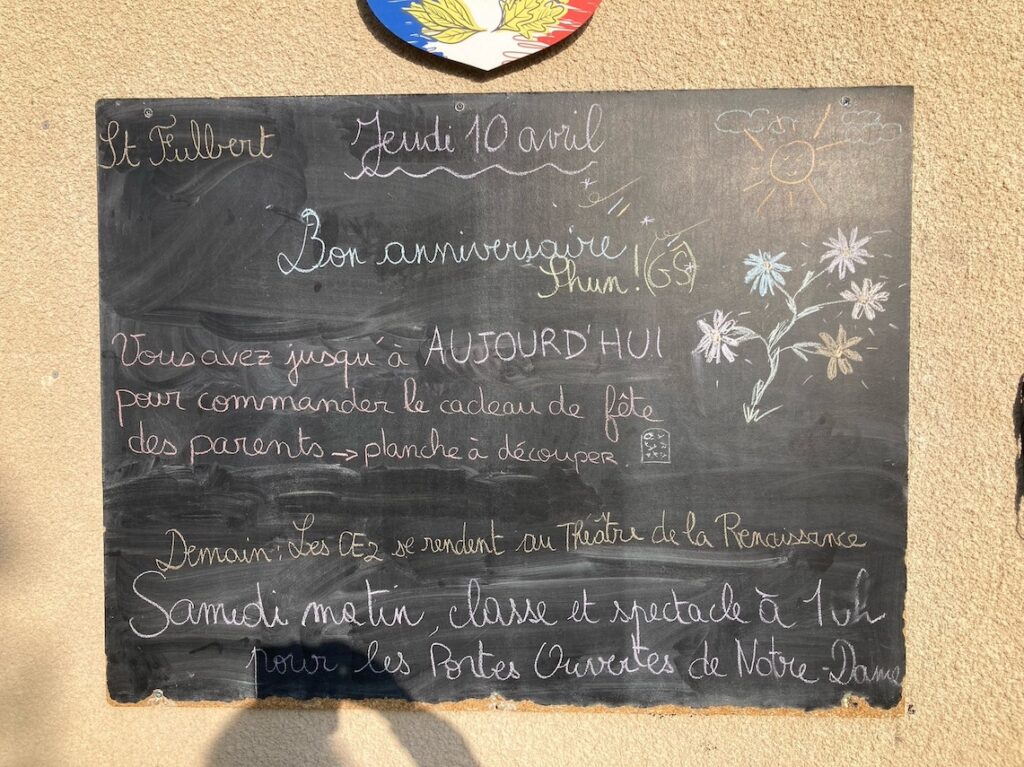 St Fulbert
Jeudi 10 avril
Bon anniversaire
Shun! (GS)
Vous avez jusqu'à AUJOURD'HUI
pour commander le cadeau de fête
des parents → planche à découper.
Demain: Les CE2 se rendent au Théâtre de la Renaissance
Samedi matin, classe et spectacle à
pour les Portes Ouvertes de Notre-Dame